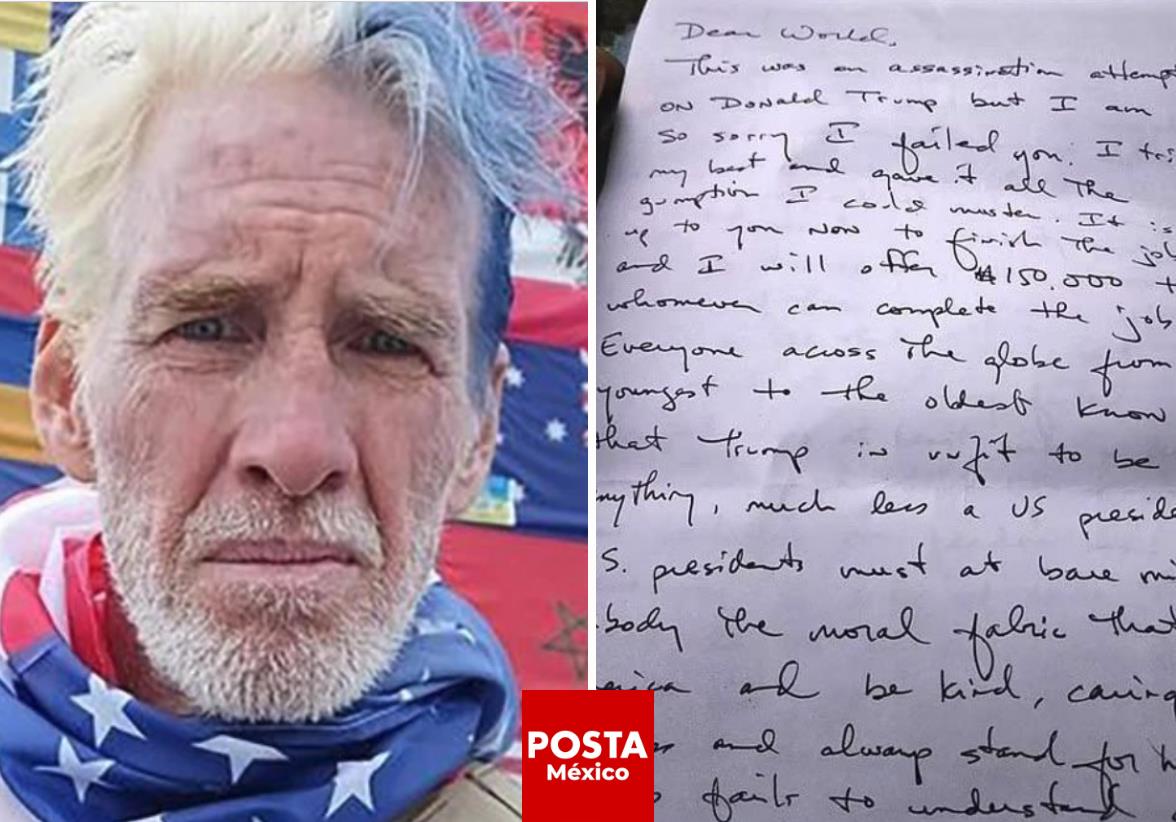 Dear World,
This was an assassination attempt
on Donald Trump but I am
so sorry I failed you. I tri
my best and gave it all the
gumption I could muster. It is
up to you now to finish the job
and I will offer $150,000 t
whomever can complete the job
Everyone across the globe from
youngest to the oldest know
that Trump is unfit to be
nything, much less a US preside
S. presidents must at bare mi
body the moral fabric that
erica and be kind, caring
ss and always stand for h
s fails to understand
POSTA
México